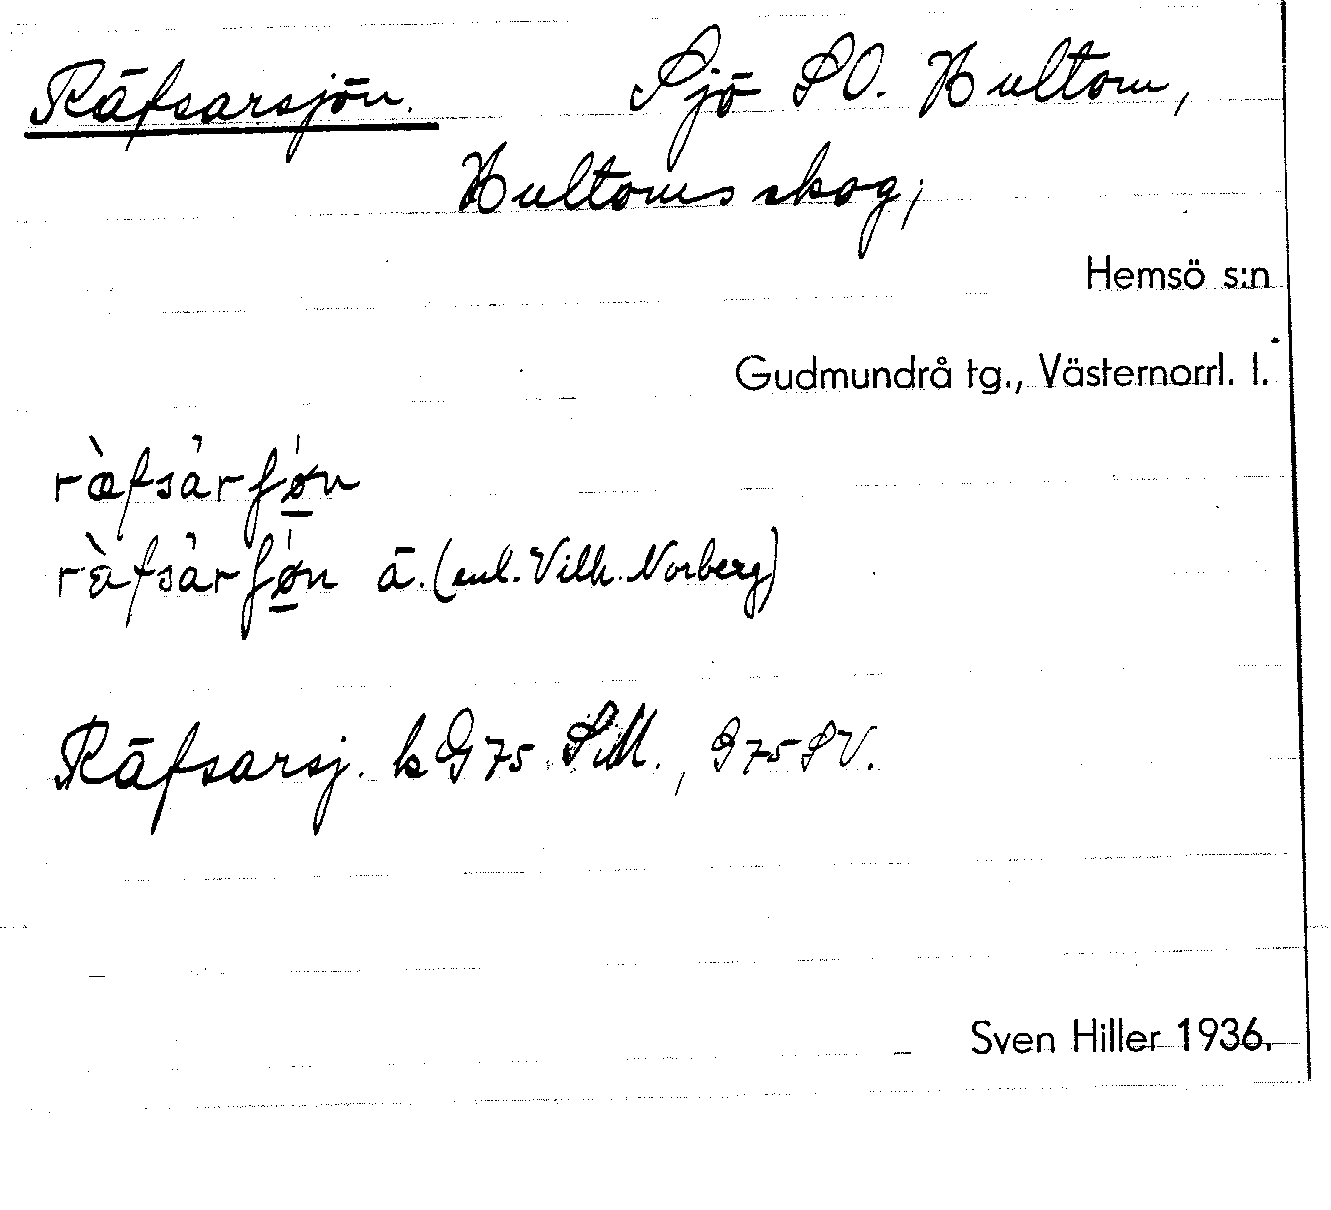 Räfsarsjön. Sjö SO. Hultom,
Hultoms skog;
Hemsö s:n
Gudmundrå tg., Västernorrl. l.
ä. (enl. Vilh. Norberg)
Räfsarsj. k G 75 SM., G 75 SV.
Sven Hiller 1936.